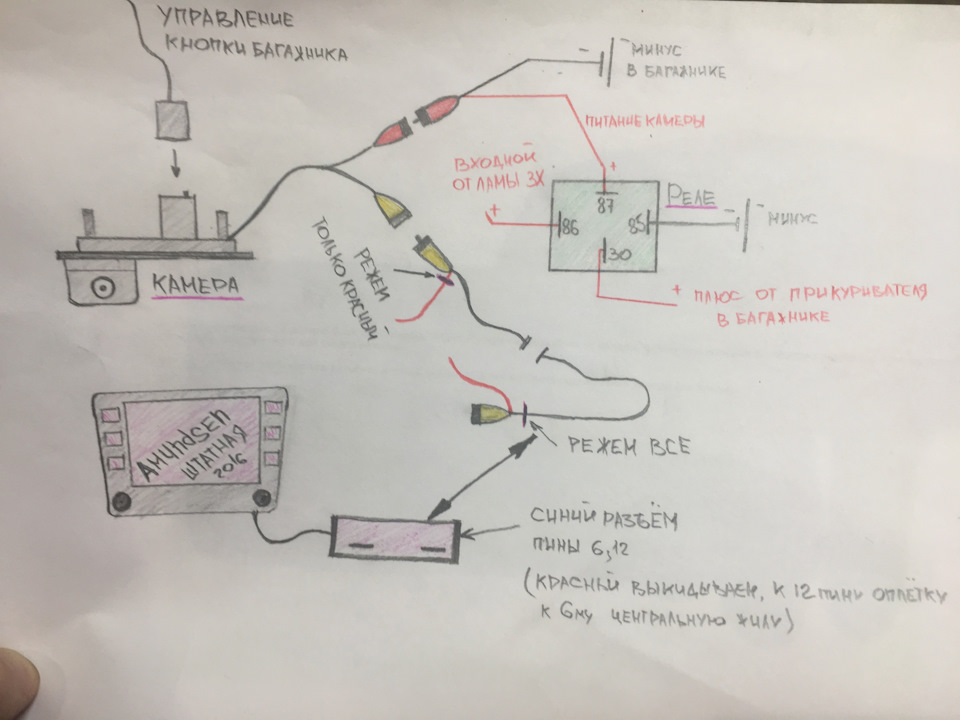 УПРАВЛЕНИЕ
КНОПКИ БАГАЖНИКА
- МИНУС
В БАГАЖНИКЕ
ПИТАНИЕ КАМЕРЫ
ВХОДНОЙ
ОТ ЛАМЫ ЗХ
+
+
87
86
85
30
РЕЛЕ
- МИНУС
+ ПЛЮС ОТ ПРИКУРИВАТЕЛЯ
В БАГАЖНИКЕ
КАМЕРА
РЕЖЕМ
ТОЛЬКО КРАСНЫЙ
AMUNDSEN
ШТАТНАЯ
2016
РЕЖЕМ ВСЕ
СИНИЙ РАЗЪЁМ
ПИНЫ 6,12
(КРАСНЫЙ ВЫКИДЫВАЕМ, К 12 ПИНУ ОПЛЁТКУ
К 6МУ ЦЕНТРАЛЬНУЮ ЖИЛУ)